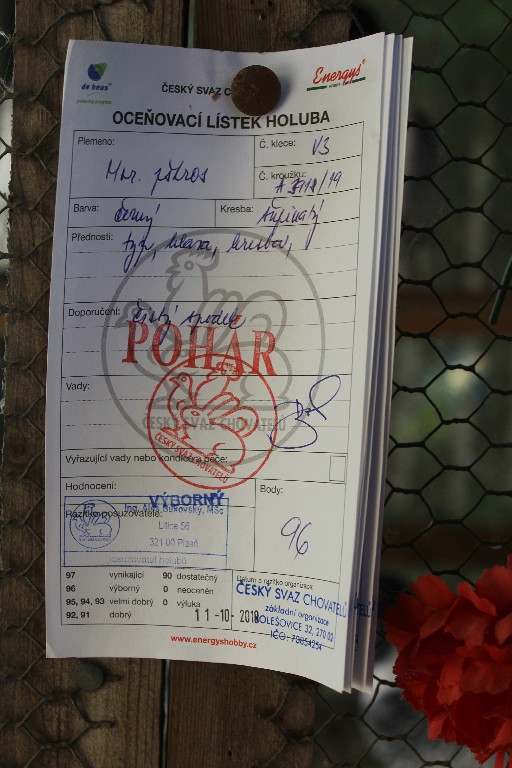 de heus
powering progress
ČESKÝ SVAZ C
Energys
OCEŇOVACÍ LÍSTEK HOLUBA
Plemeno:
Mor. pštros
Č. klece: V3
Č. kroužku:
/19
Barva: černý
Kresba: šupinatý
Přednosti: typ, hlava, kresba,
Doporučení: čistý
POHÁR
ČESKÝ SVAZ CHOVATELŮ
ČESKÝ SVAZ CHOVATELŮ
Vady:
Vyřazující vady nebo kondice a péče:
Hodnocení: VÝBORNÝ
Body:
96
Razítko posuzovatele:
Litice 56
321 00 Plzeň
posuzovatel holubů
97 vynikající 90 dostatečný
96 výborný 0 neoceněn
95, 94, 93 velmi dobrý 0 výluka
92, 91 dobrý
Datum a razítko organizace
ČESKÝ SVAZ CHOVATELŮ
základní organizace
HOLEŠOVICE 32, 270 02
IČO: 70854254
11-10-2019
www.energyshobby.cz